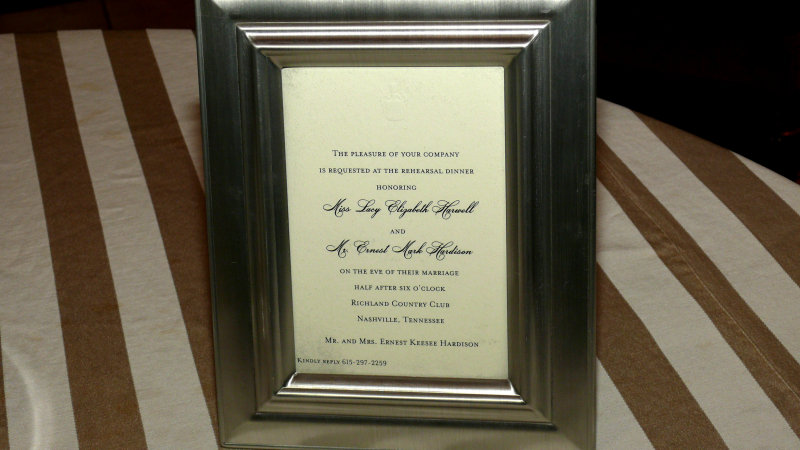 The pleasure of your company
is requested at the rehearsal dinner
honoring
Miss Lacy Elizabeth Harwell
and
Mr. Ernest Mark Hardison
on the eve of their marriage
half after six o'clock
Richland Country Club
Nashville, Tennessee
Mr. and Mrs. Ernest Keesee Hardison
Kindly reply 615-297-2259